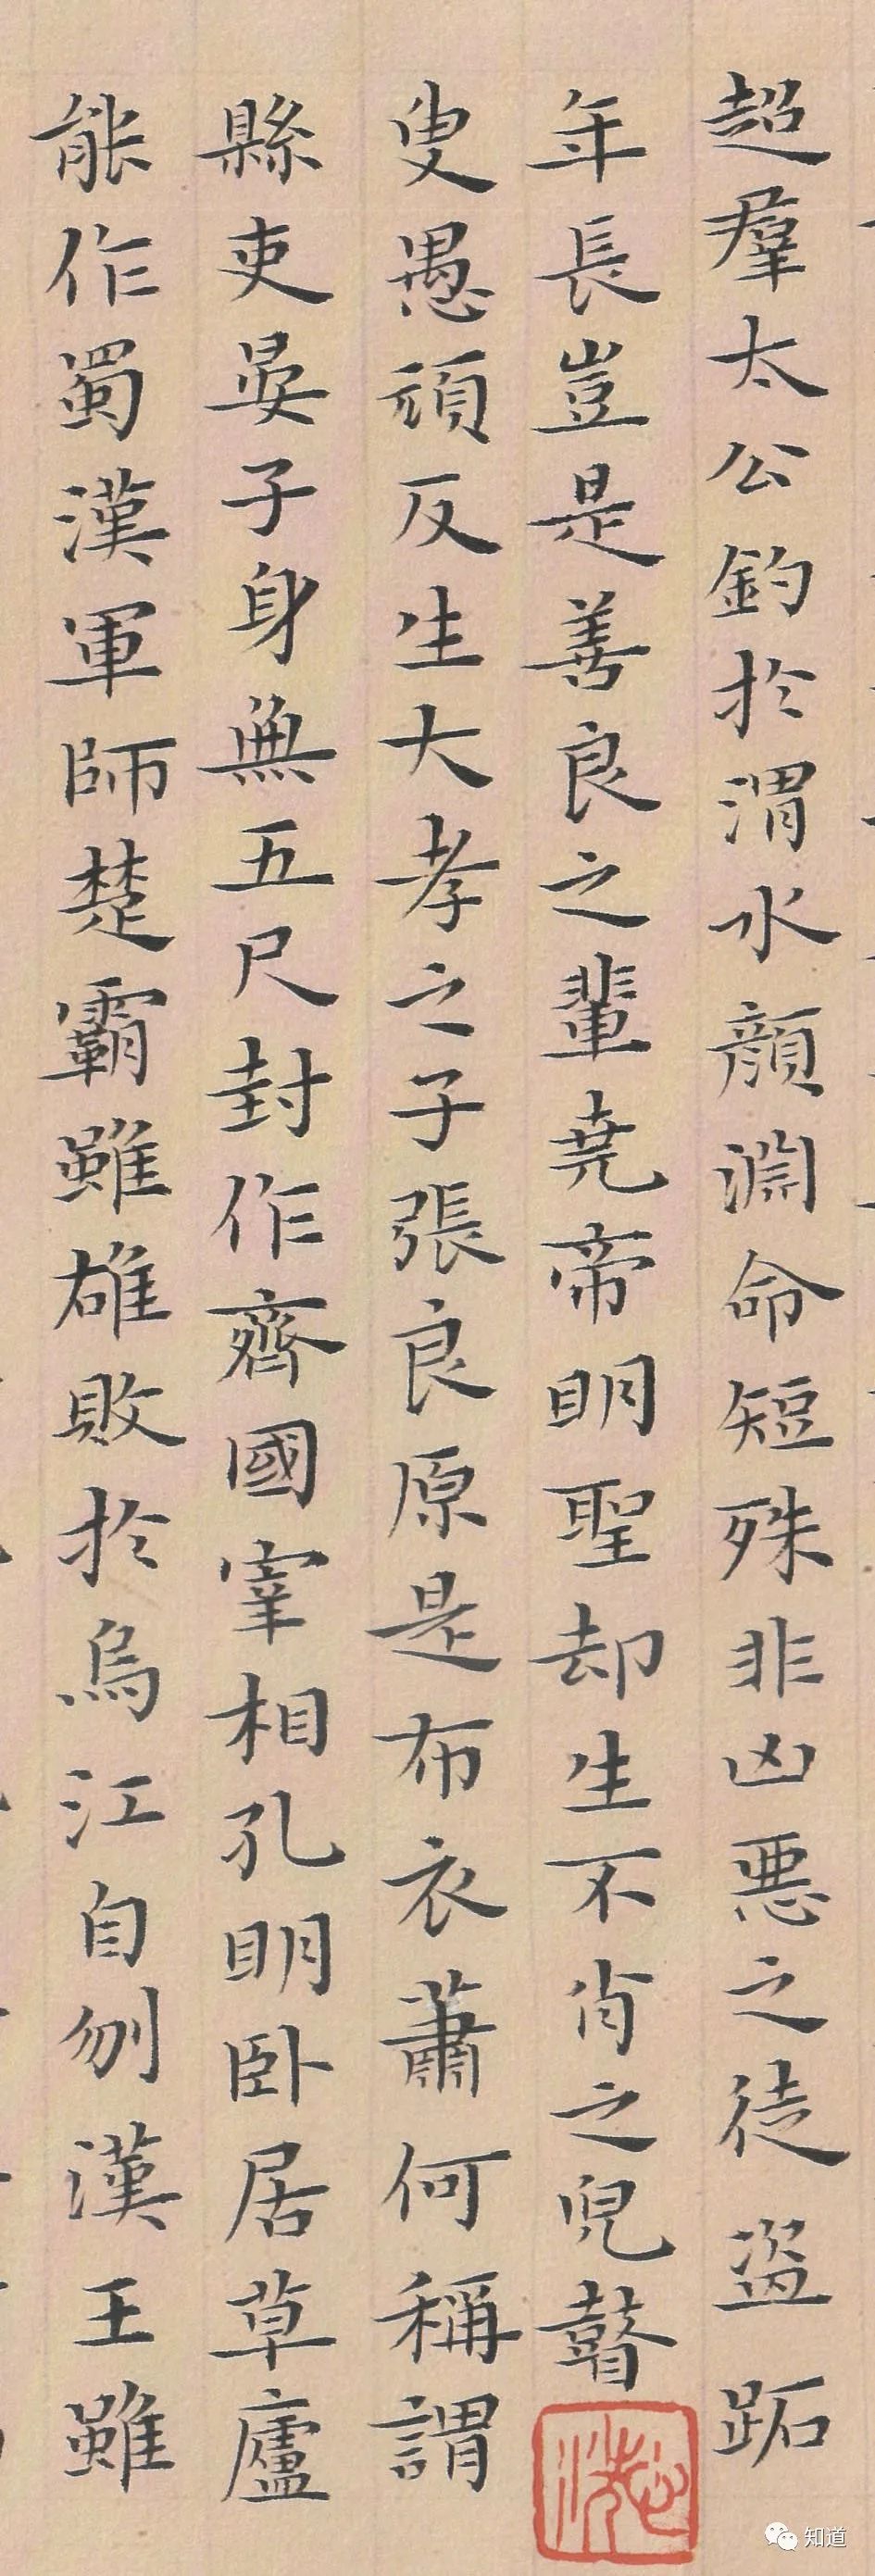 超羣太公釣於渭水顏淵命短殊非凶惡之徒盜跖
年長豈是善良之輩堯帝明聖却生不肖之兒瞽
叟愚頑反生大孝之子張良原是布衣蕭何稱謂
縣吏晏子身無五尺封作齊國宰相孔明卧居草廬
能作蜀漢軍師楚霸雖雄敗於烏江自刎漢王雖
知道